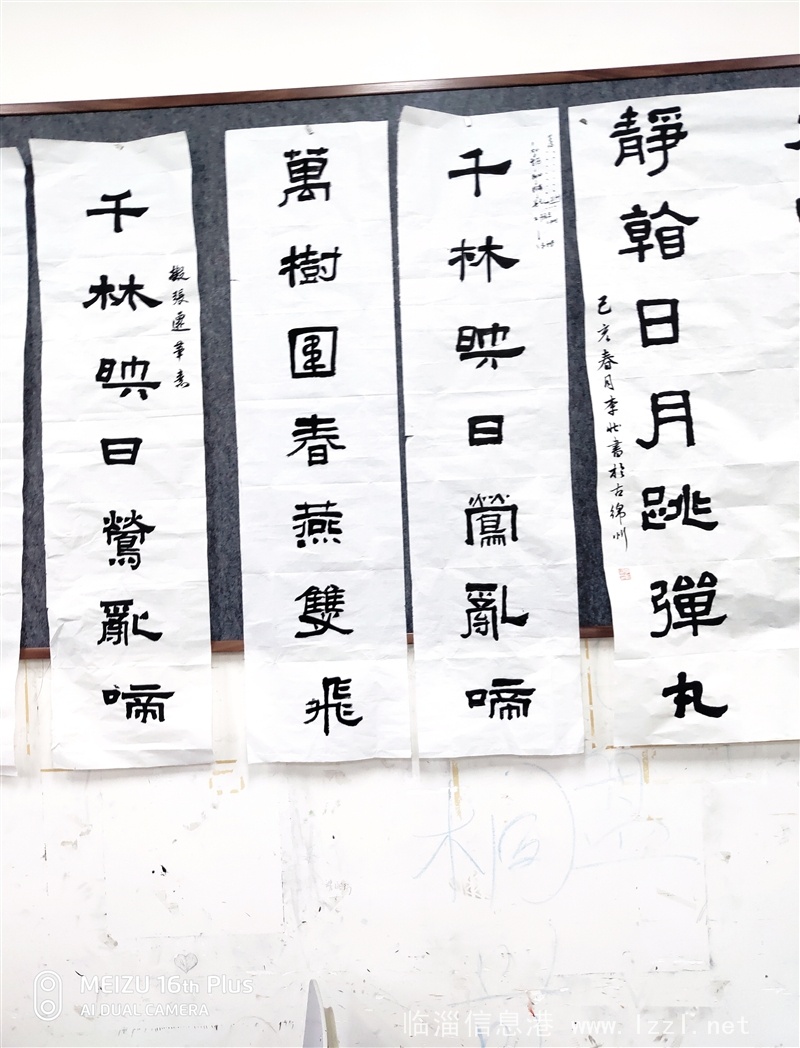 靜日月跳彈丸
己亥春月李壯書於古綿州
千林映日鶯亂啼
萬樹圍春燕雙飛
千林映日鶯亂啼
擬張遷筆意
MEIZU 16th Plus
AI DUAL CAMERA
临淄信息港 www.lzzl.net